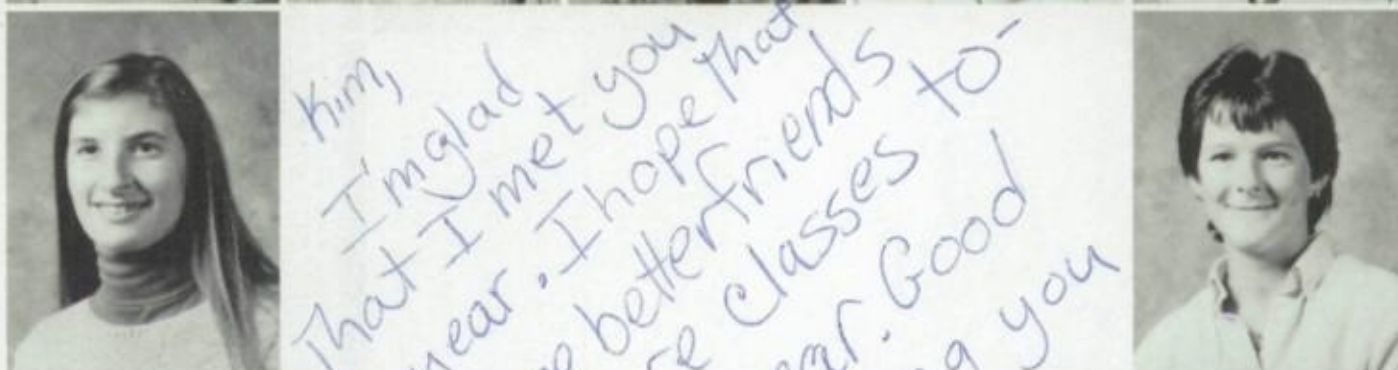 Kim,
I'm glad
That I met you
year. I hope that
better friends
classes to-
Good
you